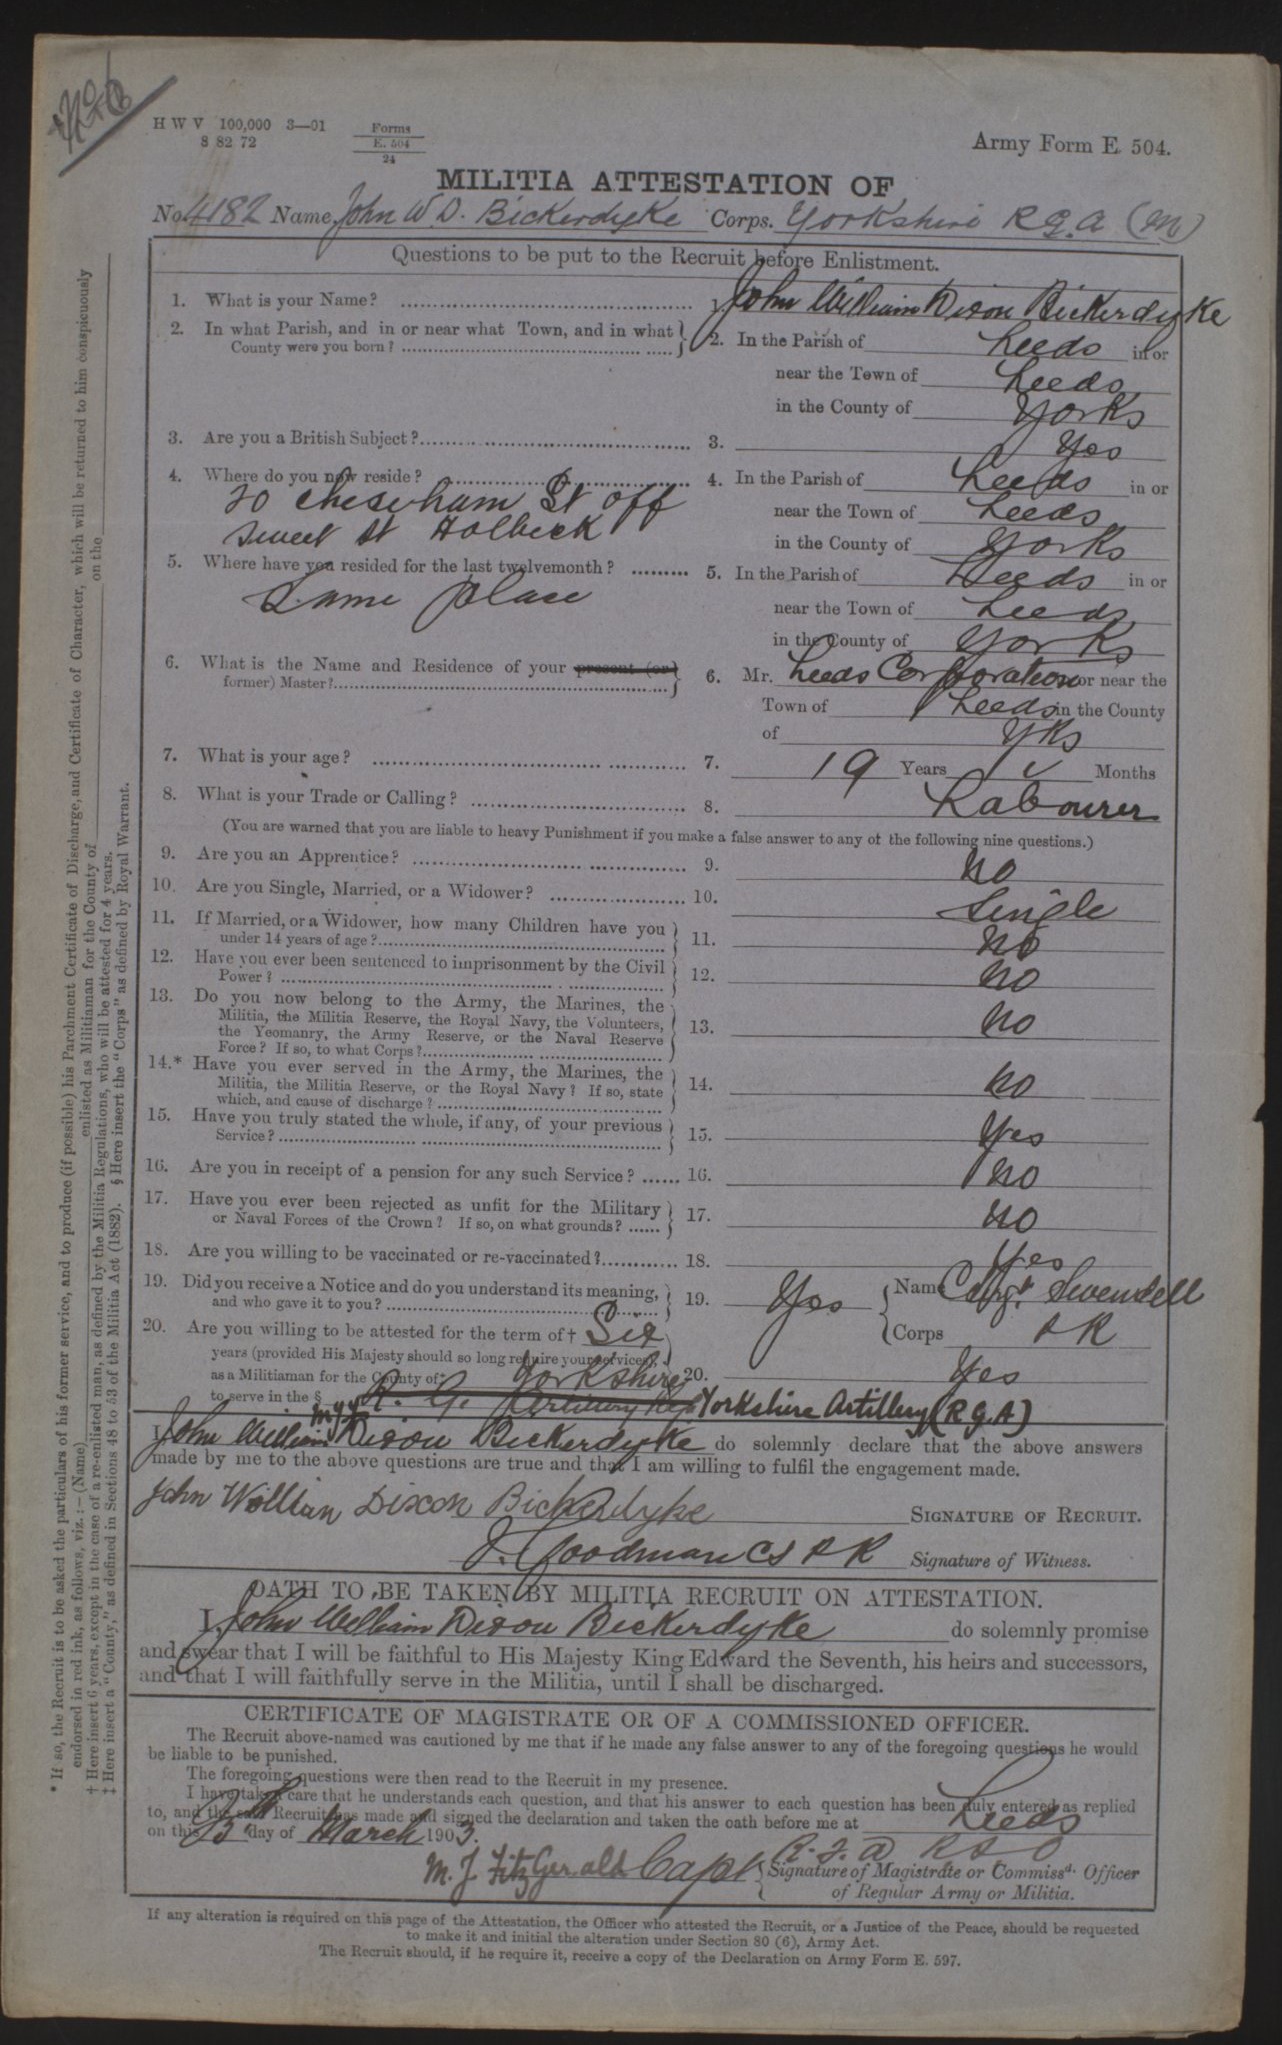 No 6
H W V 100,000 3—01
8 82 72
Forms
E. 504
24
Army Form E. 504.
MILITIA ATTESTATION OF
No. 4182 Name John W D. Bickerdyke Corps. Yorkshire R G. A (M)
Questions to be put to the Recruit before Enlistment.
1. What is your Name? John William Dixon Bickerdyke
2. In what Parish, and in or near what Town, and in what County were you born? 2. In the Parish of Leeds in or
near the Town of Leeds
in the County of Yorks
3. Are you a British Subject? 3. Yes
4. Where do you now reside? 4. In the Parish of Leeds in or
20 Chesham St off
near the Town of Leeds
Sweet St Holbeck
in the County of Yorks
5. Where have you resided for the last twelvemonth? 5. In the Parish of Leeds in or
Same place
near the Town of Leeds
in the County of Yorks
6. What is the Name and Residence of your present (or former) Master? 6. Mr. Leeds Corporation or near the
Town of Leeds in the County
of Yks
7. What is your age? 7. 19 Years ✓ Months
8. What is your Trade or Calling? 8. Labourer
(You are warned that you are liable to heavy Punishment if you make a false answer to any of the following nine questions.)
9. Are you an Apprentice? 9. No
10. Are you Single, Married, or a Widower? 10. Single
11. If Married, or a Widower, how many Children have you
under 14 years of age? 11. No
12. Have you ever been sentenced to imprisonment by the Civil
Power? 12. No
13. Do you now belong to the Army, the Marines, the
Militia, the Militia Reserve, the Royal Navy, the Volunteers,
the Yeomanry, the Army Reserve, or the Naval Reserve
Force? If so, to what Corps? 13. No
14.* Have you ever served in the Army, the Marines, the
Militia, the Militia Reserve, or the Royal Navy? If so, state
which, and cause of discharge? 14. No
15. Have you truly stated the whole, if any, of your previous
Service? 15. Yes
16. Are you in receipt of a pension for any such Service? 16. No
17. Have you ever been rejected as unfit for the Military
or Naval Forces of the Crown? If so, on what grounds? 17. No
18. Are you willing to be vaccinated or re-vaccinated? 18. Yes
19. Did you receive a Notice and do you understand its meaning,
and who gave it to you? 19. Yes Name C Sergt. Swendell
Corps P R
20. Are you willing to be attested for the term of † Six
years (provided His Majesty should so long require your services),
as a Militiaman for the County of ‡ Yorkshire 20. Yes
to serve in the § R. G. Artillery Yorkshire Artillery (R G A)
I John William Dixon Bickerdyke do solemnly declare that the above answers
made by me to the above questions are true and that I am willing to fulfil the engagement made.
John William Dixon Bickerdyke SIGNATURE OF RECRUIT.
J. Goodman CS P R Signature of Witness.
OATH TO BE TAKEN BY MILITIA RECRUIT ON ATTESTATION.
I, John William Dixon Bickerdyke do solemnly promise
and swear that I will be faithful to His Majesty King Edward the Seventh, his heirs and successors,
and that I will faithfully serve in the Militia, until I shall be discharged.
CERTIFICATE OF MAGISTRATE OR OF A COMMISSIONED OFFICER.
The Recruit above-named was cautioned by me that if he made any false answer to any of the foregoing questions he would
be liable to be punished.
The foregoing questions were then read to the Recruit in my presence.
I have taken care that he understands each question, and that his answer to each question has been duly entered as replied
to, and the said Recruit has made and signed the declaration and taken the oath before me at Leeds
on this 13th day of March 1903.
R. F. A R S O
M. J. FitzGerald Capt Signature of Magistrate or Commissd. Officer
of Regular Army or Militia.
If any alteration is required on this page of the Attestation, the Officer who attested the Recruit, or a Justice of the Peace, should be requested
to make it and initial the alteration under Section 80 (6), Army Act.
The Recruit should, if he require it, receive a copy of the Declaration on Army Form E. 597.
* If so, the Recruit is to be asked the particulars of his former service, and to produce (if possible) his Parchment Certificate of Discharge, and Certificate of Character, which will be returned to him conspicuously
endorsed in red ink, as follows, viz.:—(Name) enlisted as Militiaman for the County of on the
† Here insert 6 years, except in the case of a re-enlisted man, as defined by the Militia Regulations, who will be attested for 4 years.
‡ Here insert a "County," as defined in Sections 48 to 53 of the Militia Act (1882). § Here insert the "Corps" as defined by Royal Warrant.